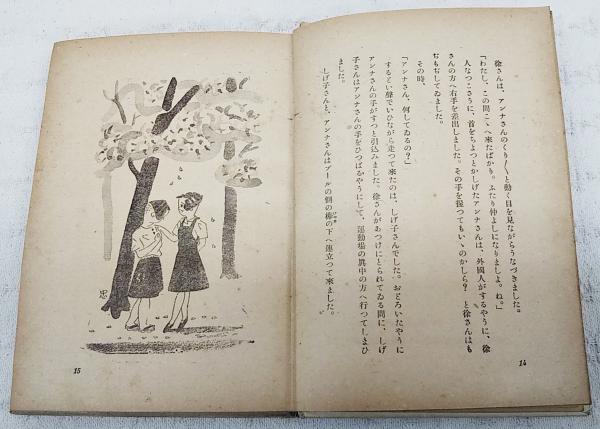 徐さんは、アンナさんのくり〱と動く目を見ながらうなづきました。
「わたし、この間こゝへ来たばかり。ふたり仲よしになりましよ。ね。」
人なつこさうに、首をちよつとかしげたアンナさんは、外國人がするやうに、徐
さんの方へ右手を差出しました。その手を握つてもいゝのかしら？　と徐さんはも
ぢもぢしてゐました。
その時、
「アンナさん、何してゐるの？」
するどい聲でいひながら走つて来たのは、しげ子さんでした。おどろいたやうに
アンナさんの手がすつと引込みました。徐さんがあつけにとられてゐる間に、しげ
子さんはアンナさんの手をひつぱるやうにして、運動場の眞中の方へ行つてしまひ
ました。
しげ子さんと、アンナさんはプールの側の椿の下へ連立つて来ました。
14
思
15